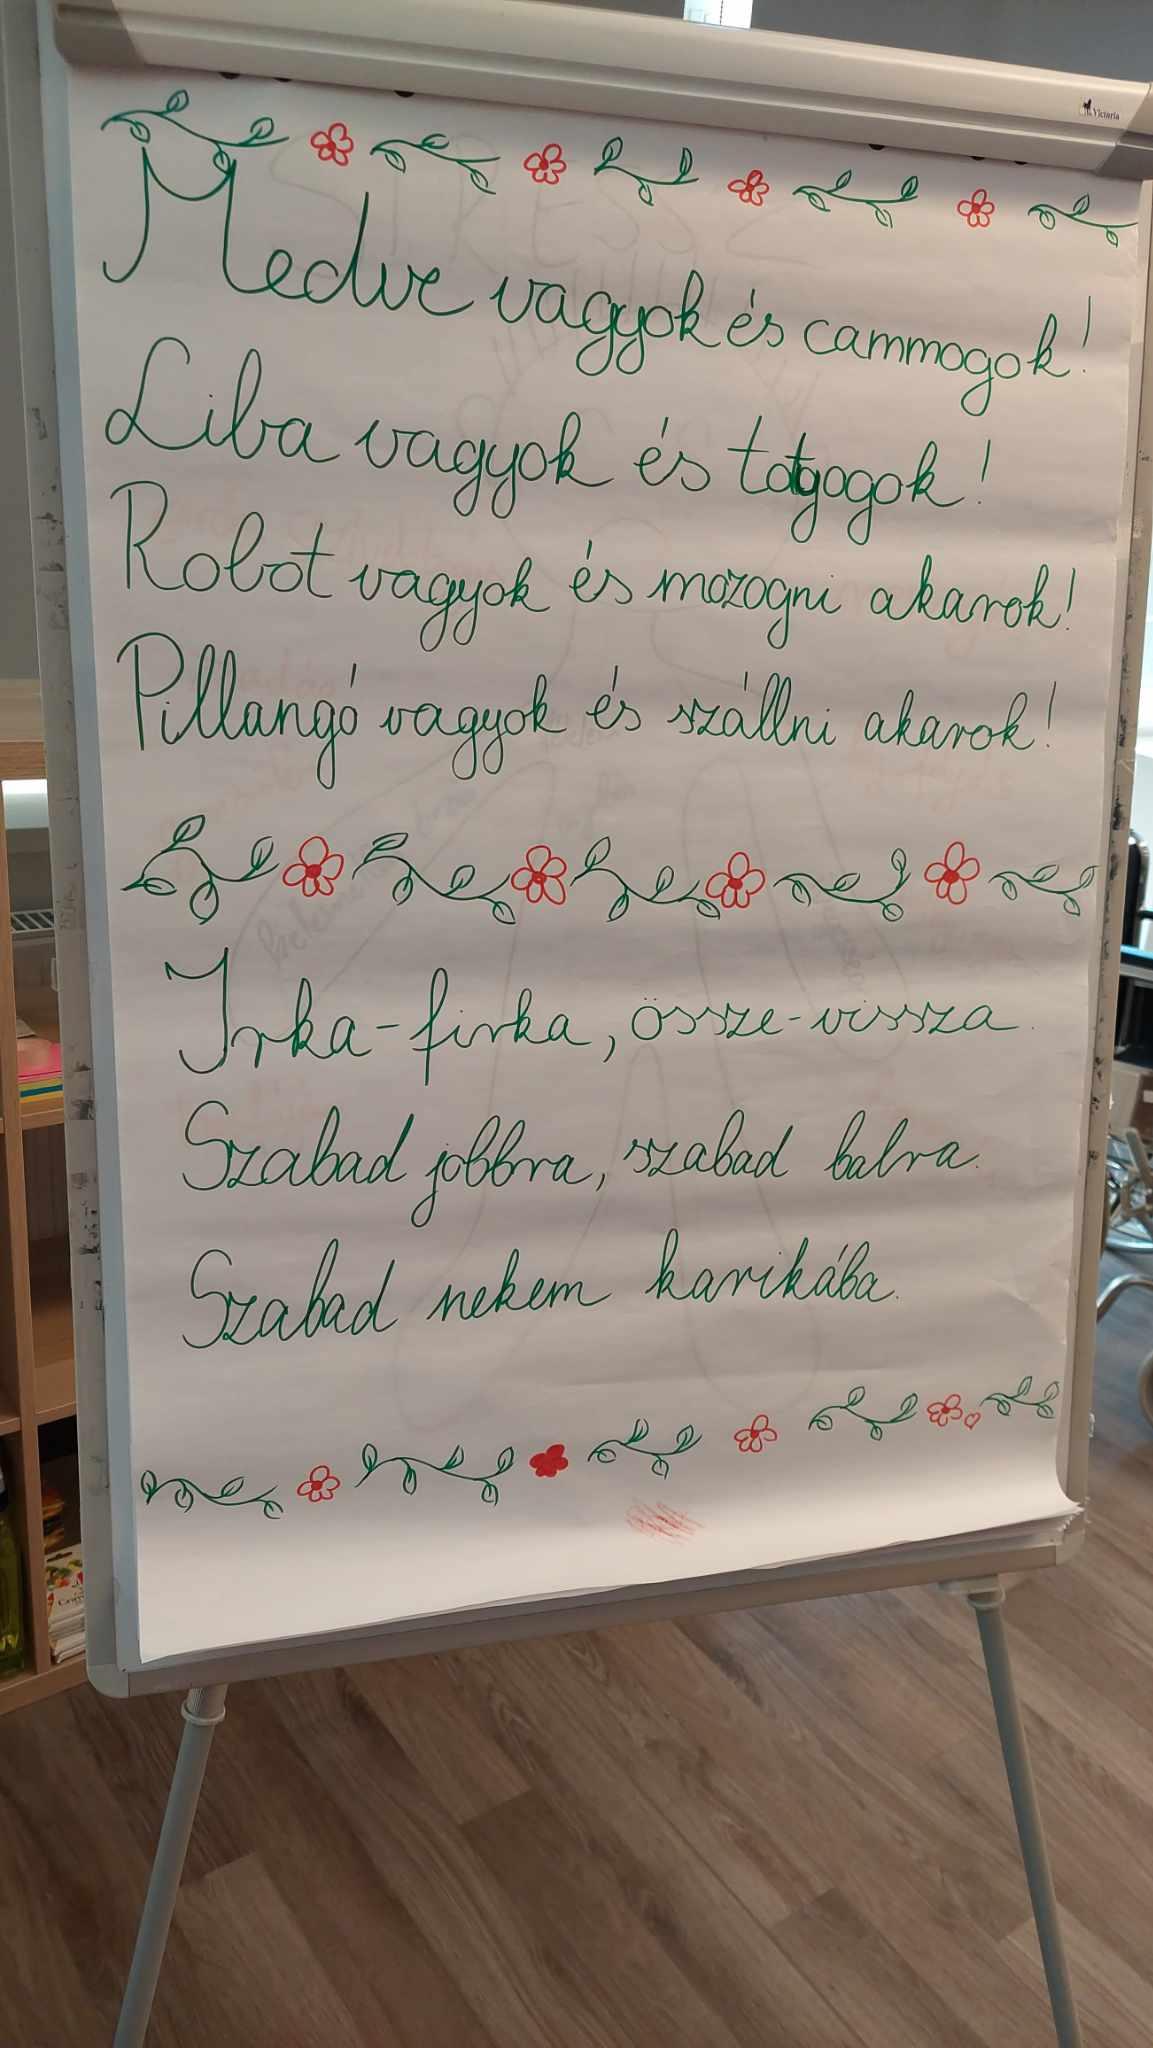 Victoria
Medve vagyok és cammogok!
Liba vagyok és totyogok!
Robot vagyok és mozogni akarok!
Pillangó vagyok és szállni akarok!
Irka-firka, össze-vissza.
Szabad jobbra, szabad balra.
Szabad nekem karikába.